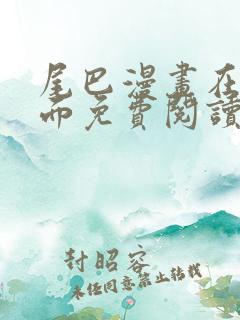 尾巴漫畫在
而免費閱讀
封昭容
未经同意禁止转载